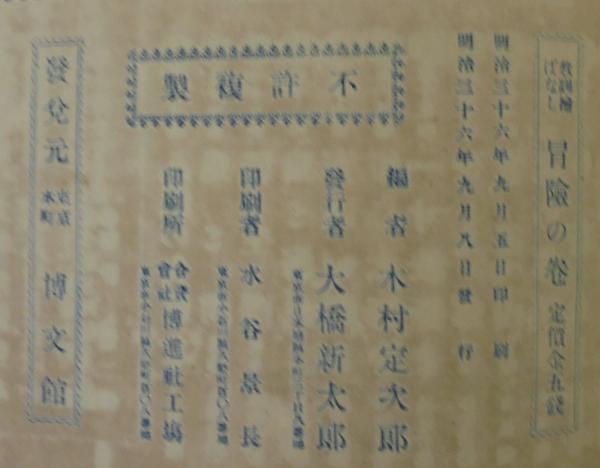 教訓繪ばなし 冒險の卷 定價金五錢
明治三十六年九月五日印刷
明治三十六年九月八日發行
不許複製
編者 木村定次郎
發行者 大橋新太郎
印刷者 水谷景長
印刷所 合資會社 博進社工場
發兌元 東京本町 博文館